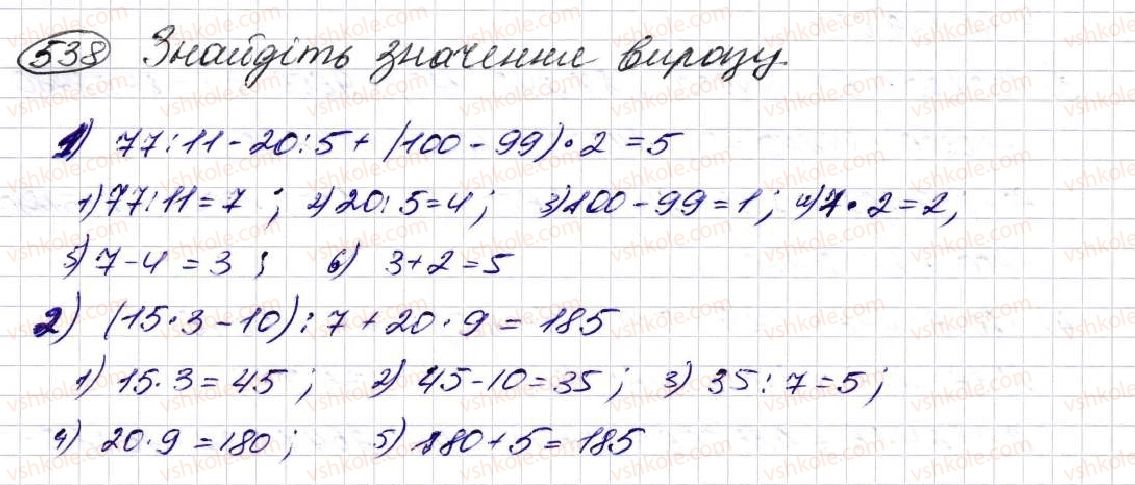 538 Знайдіть значення виразу
1) 77:11-20:5+(100-99)·2=5
1) 77:11=7; 2) 20:5=4; 3) 100-99=1; 4) 1·2=2;
5) 7-4=3; 6) 3+2=5
2) (15·3-10):7+20·9=185
1) 15·3=45; 2) 45-10=35; 3) 35:7=5;
4) 20·9=180; 5) 180+5=185